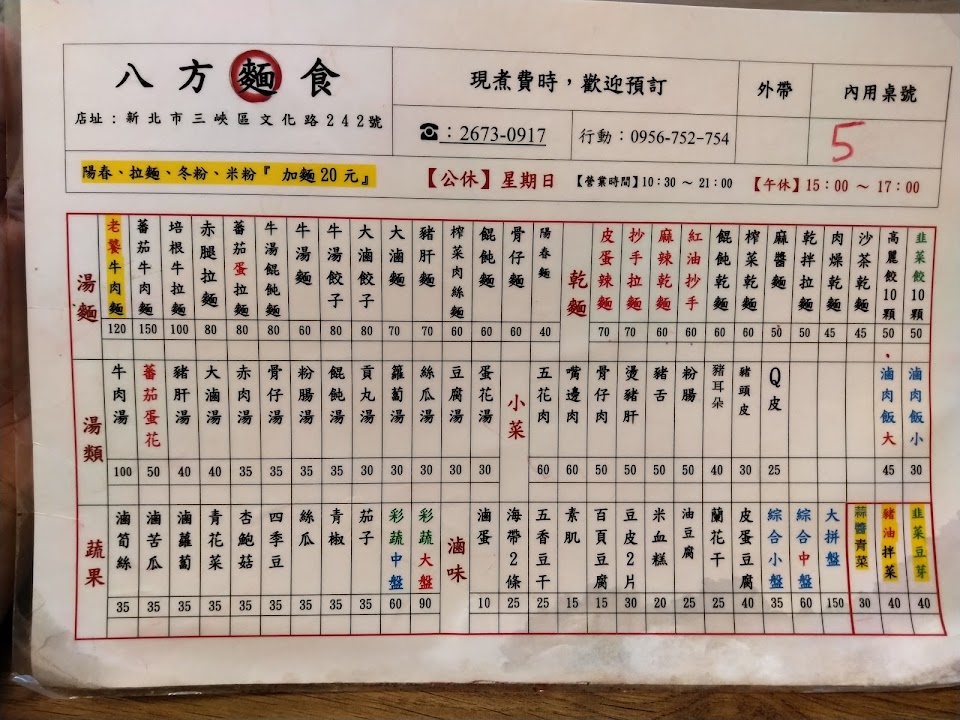 八方麵食
店址：新北市三峽區文化路242號
現煮費時，歡迎預訂
☎：2673-0917
行動：0956-752-754
外帶
內用桌號
5
陽春、拉麵、冬粉、米粉『 加麵20元』
【公休】星期日
【營業時間】10:30 ～ 21:00
【午休】15:00 ～ 17:00
湯麵
老饕牛肉麵 120
蕃茄牛肉麵 150
培根牛拉麵 100
赤腿拉麵 80
蕃茄蛋拉麵 80
牛湯餛飩麵 80
牛湯麵 60
牛湯餃子 80
大滷餃子 80
大滷麵 70
豬肝麵 70
榨菜肉絲麵 60
餛飩麵 60
骨仔麵 60
陽春麵 40
乾麵
皮蛋辣麵 70
抄手拉麵 70
麻辣乾麵 60
紅油抄手 60
餛飩乾麵 60
榨菜乾麵 60
麻醬麵 50
乾拌拉麵 50
肉燥乾麵 45
沙茶乾麵 45
高麗餃10顆 50
韭菜餃10顆 50
湯類
牛肉湯 100
蕃茄蛋花 50
豬肝湯 40
大滷湯 40
赤肉湯 35
骨仔湯 35
粉腸湯 35
餛飩湯 35
貢丸湯 30
蘿蔔湯 30
絲瓜湯 30
豆腐湯 30
蛋花湯 30
小菜
五花肉 60
嘴邊肉 60
骨仔肉 50
燙豬肝 50
豬舌 50
粉腸 50
豬耳朵 40
豬頭皮 30
Q皮 25
滷肉飯大 45
滷肉飯小 30
蔬果
滷筍絲 35
滷苦瓜 35
滷蘿蔔 35
青花菜 35
杏鮑菇 35
四季豆 35
絲瓜 35
青椒 35
茄子 35
彩蔬中盤 60
彩蔬大盤 90
滷味
滷蛋 10
海帶2條 25
五香豆干 25
素肌 15
百頁豆腐 15
豆皮2片 30
米血糕 20
油豆腐 25
蘭花干 25
皮蛋豆腐 40
綜合小盤 35
綜合中盤 60
大拼盤 150
蒜醬青菜 30
豬油拌菜 40
韭菜豆芽 40